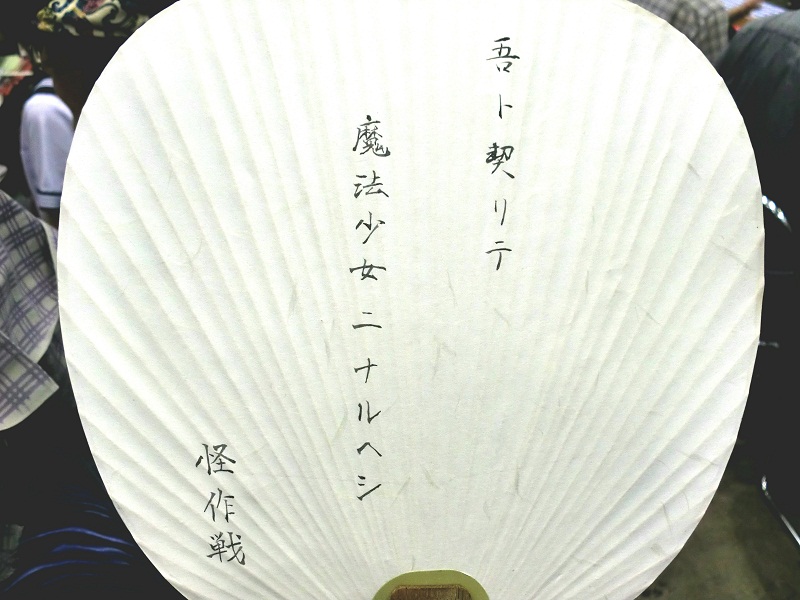 吾ト契リテ
魔法少女ニナルヘシ
怪作戦